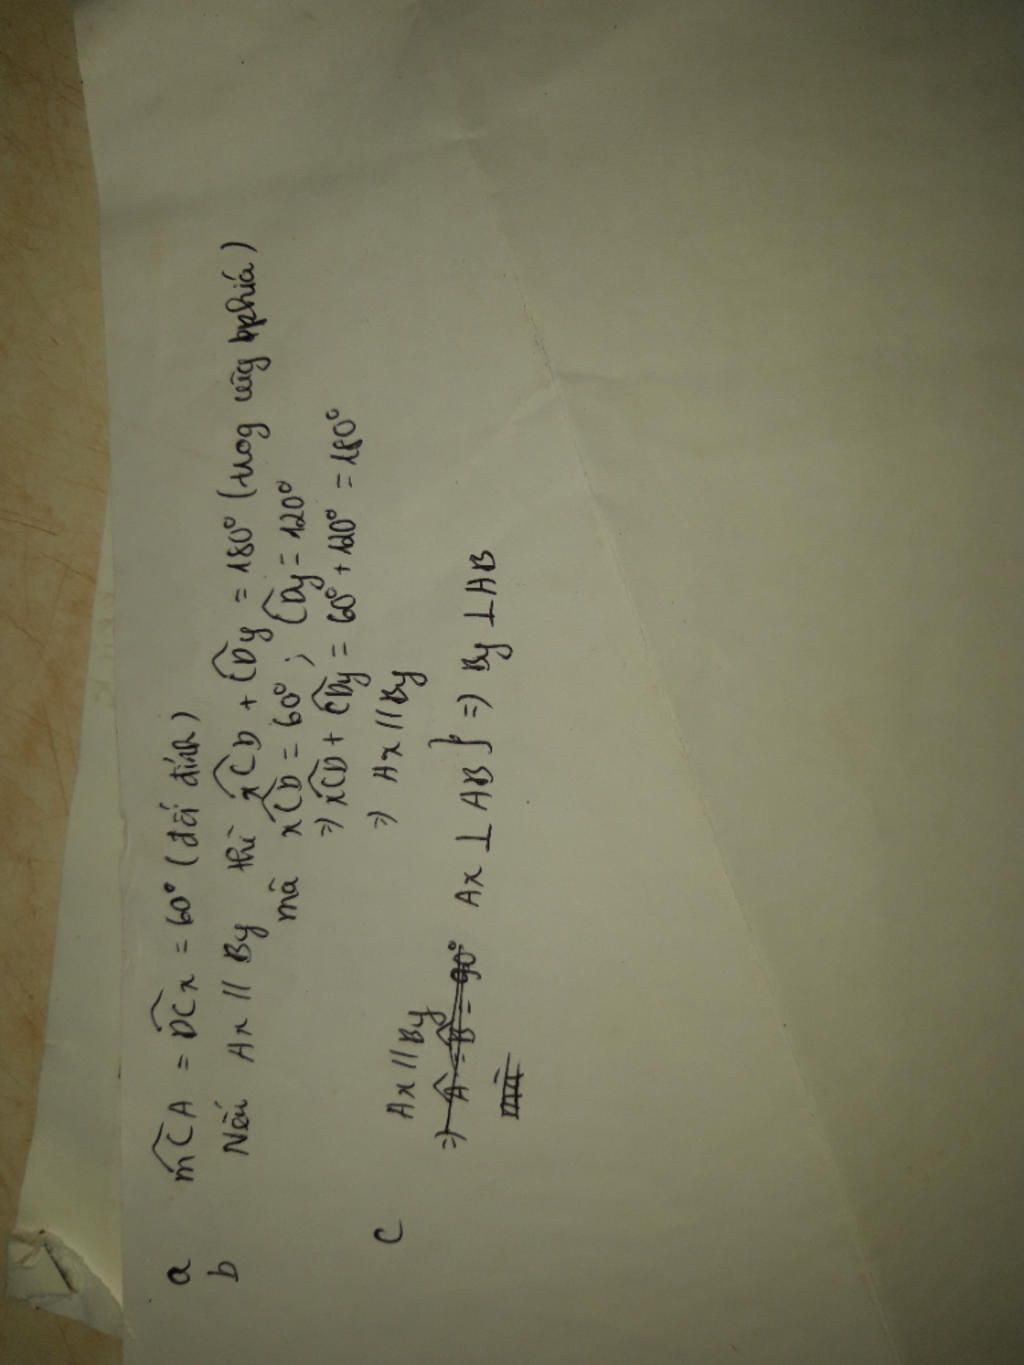 a mCA = DCx = 60° (đối đỉnh)
b Nếu Ax // By thì xCD + CDy = 180° (trog cùg phía)
mà xCD = 60° ; CDy = 120°
=) xCD + CDy = 60° + 120° = 180°
=) Ax // By
c Ax // By
=) A = B = 90° Ax ⊥ AB } =) By ⊥ AB
mà